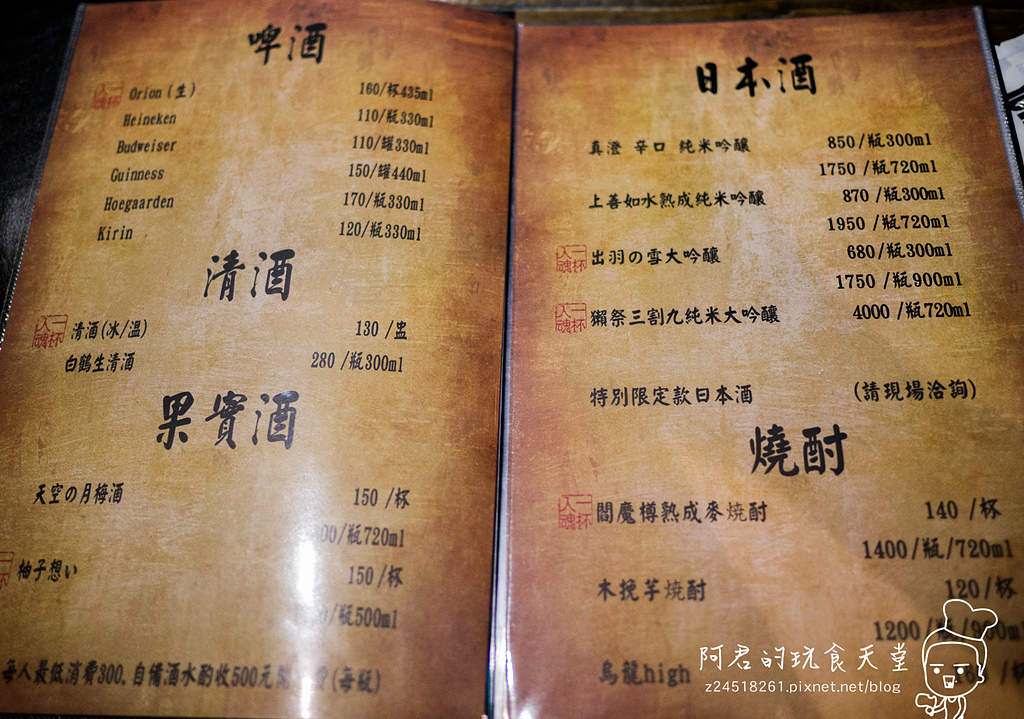 啤酒
一杯入魂 Orion (生) 160/杯435ml
Heineken 110/瓶330ml
Budweiser 110/罐330ml
Guinness 150/罐440ml
Hoegaarden 170/瓶330ml
Kirin 120/瓶330ml
清酒
一杯入魂 清酒(冰/溫) 130 /盅
白鶴生清酒 280 /瓶300ml
果實酒
天空の月梅酒 150 /杯
/瓶720ml
柚子想い 150 /杯
/瓶500ml
每人最低消費300.自備酒水酌收500元開 費(每瓶)
日本酒
真澄 辛口 純米吟釀 850/瓶300ml
1750 /瓶720ml
上善如水熟成純米吟釀 870 /瓶300ml
1950 /瓶720ml
一杯入魂 出羽の雪大吟釀 680/瓶300ml
1750 /瓶900ml
一杯入魂 獺祭三割九純米大吟釀 4000 /瓶720ml
特別限定款日本酒 (請現場洽詢)
燒酎
一杯入魂 閻魔樽熟成麥燒酎 140 /杯
1400/瓶/720ml
木挽芋燒酎 120/杯
1200 /瓶/900ml
烏龍high /杯
阿君的玩食天堂
z24518261.pixnet.net/blog